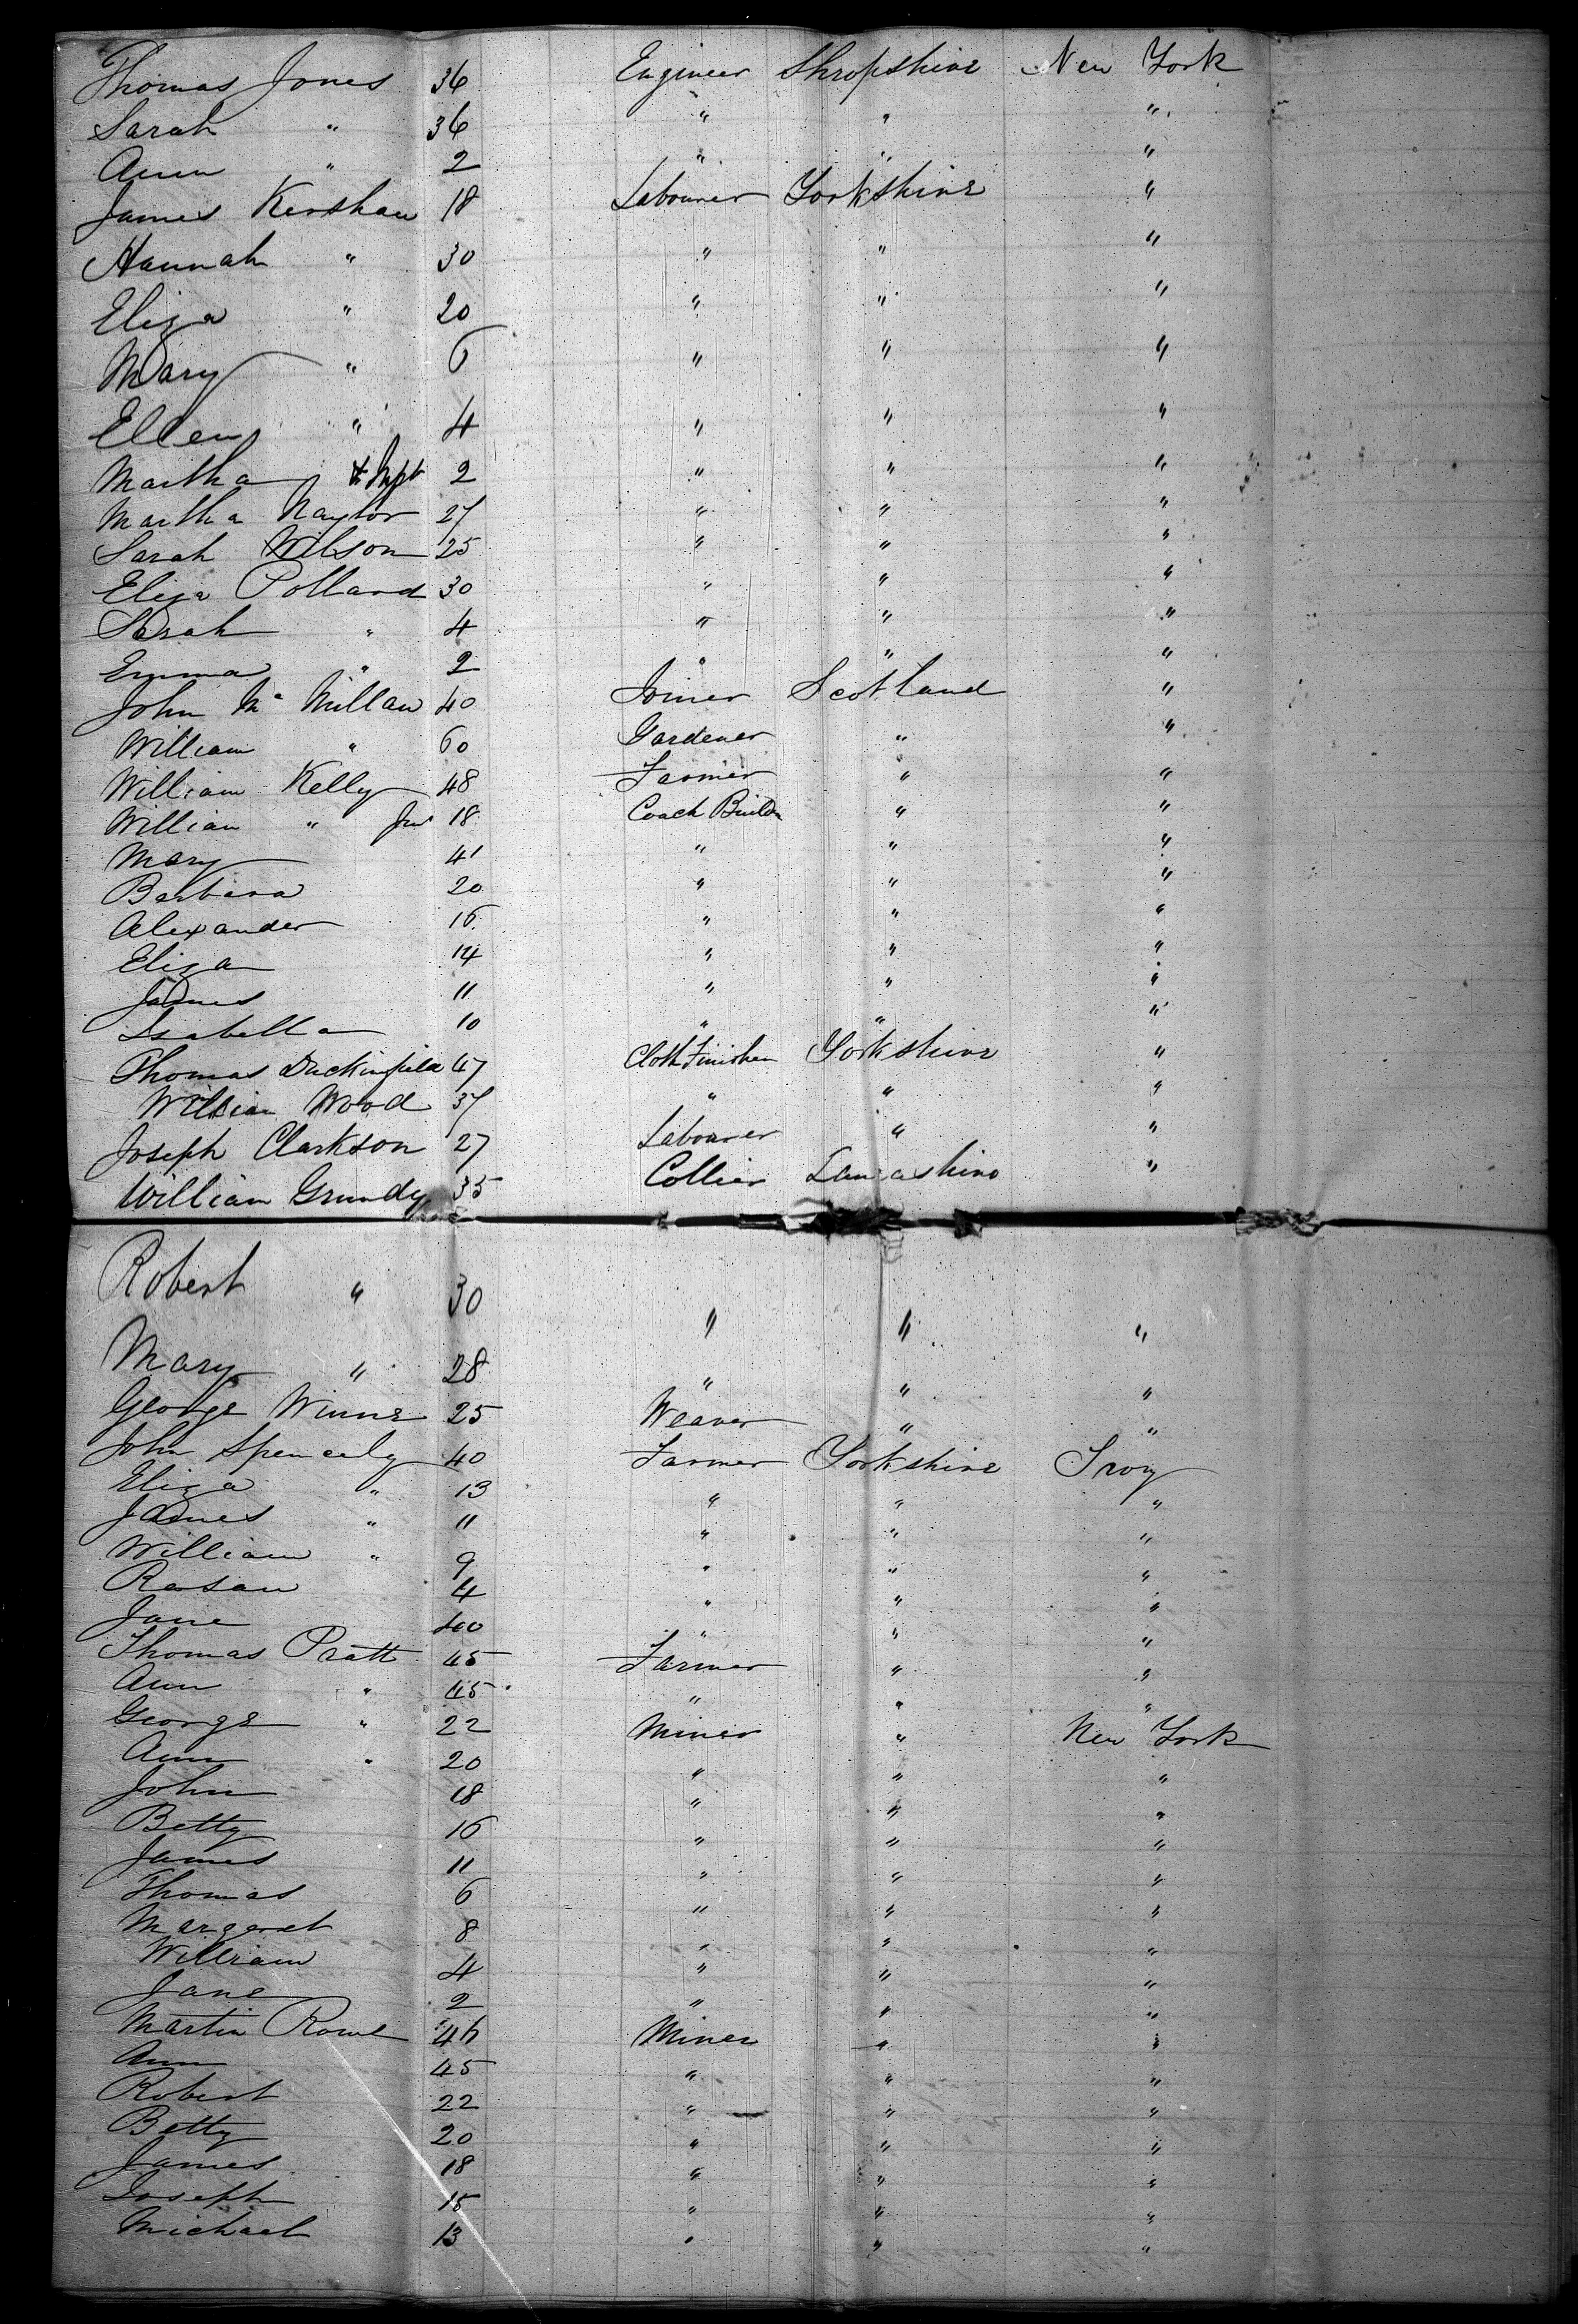 Thomas Jones 36 Engineer Shropshire New York
Sarah " 36 " " "
Ann " 2 " " "
James Kershaw 18 Labourer Yorkshire "
Hannah " 30 " " "
Eliza " 20 " " "
Mary " 6 " " "
Ellen " 4 " " "
Martha & Inft 2 " " "
Martha Naylor 27 " " "
Sarah Wilson 25 " " "
Eliza Pollard 30 " " "
Sarah " 4 " " "
Emma " 2 " " "
John Mc Millan 40 Joiner Scotland "
William " 60 Gardener " "
William Kelly 48 Farmer " "
William " Junr 18 Coach Builder " "
Mary 41 " " "
Barbara 20 " " "
Alexander 16 " " "
Eliza 14 " " "
James 11 " " "
Isabella 10 " " "
Thomas Duckinfield 47 Cloth Finisher Yorkshire "
William Wood 37 " " "
Joseph Clarkson 27 Labourer " "
William Grundy 35 Collier Lancashire "
Robert " 30 " " "
Mary " 28 " " "
George Winne 25 Weaver " "
John Spencely 40 Farmer Yorkshire Troy
Eliza " 13 " " "
James " 11 " " "
William " 9 " " "
Rosan 4 " " "
Jane 40 " " "
Thomas Pratt 45 Farmer " "
Ann " 45 " " "
George " 22 Miner " New York
Ann " 20 " " "
John 18 " " "
Betty 16 " " "
James 11 " " "
Thomas 6 " " "
Margaret 8 " " "
William 4 " " "
Jane 2 " " "
Martin Rowe 46 Miner " "
Ann 45 " " "
Robert 22 " " "
Betty 20 " " "
James 18 " " "
Joseph 15 " " "
Michael 13 " " "